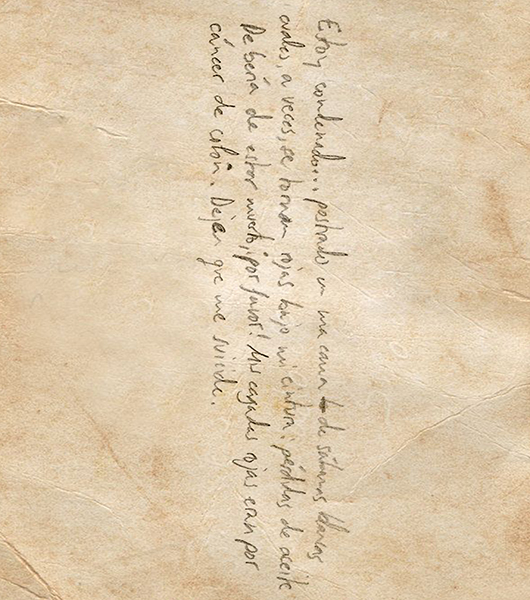 Estoy condenado... postrado en una cama de sábanas blancas
cuales, a veces, se tornan rojas bajo mi cintura: pérdidas de aceite
Debería de estar muerto, ¡por favor! Mis cagadas rojas eran por
cáncer de colon. Dejen que me suicide.